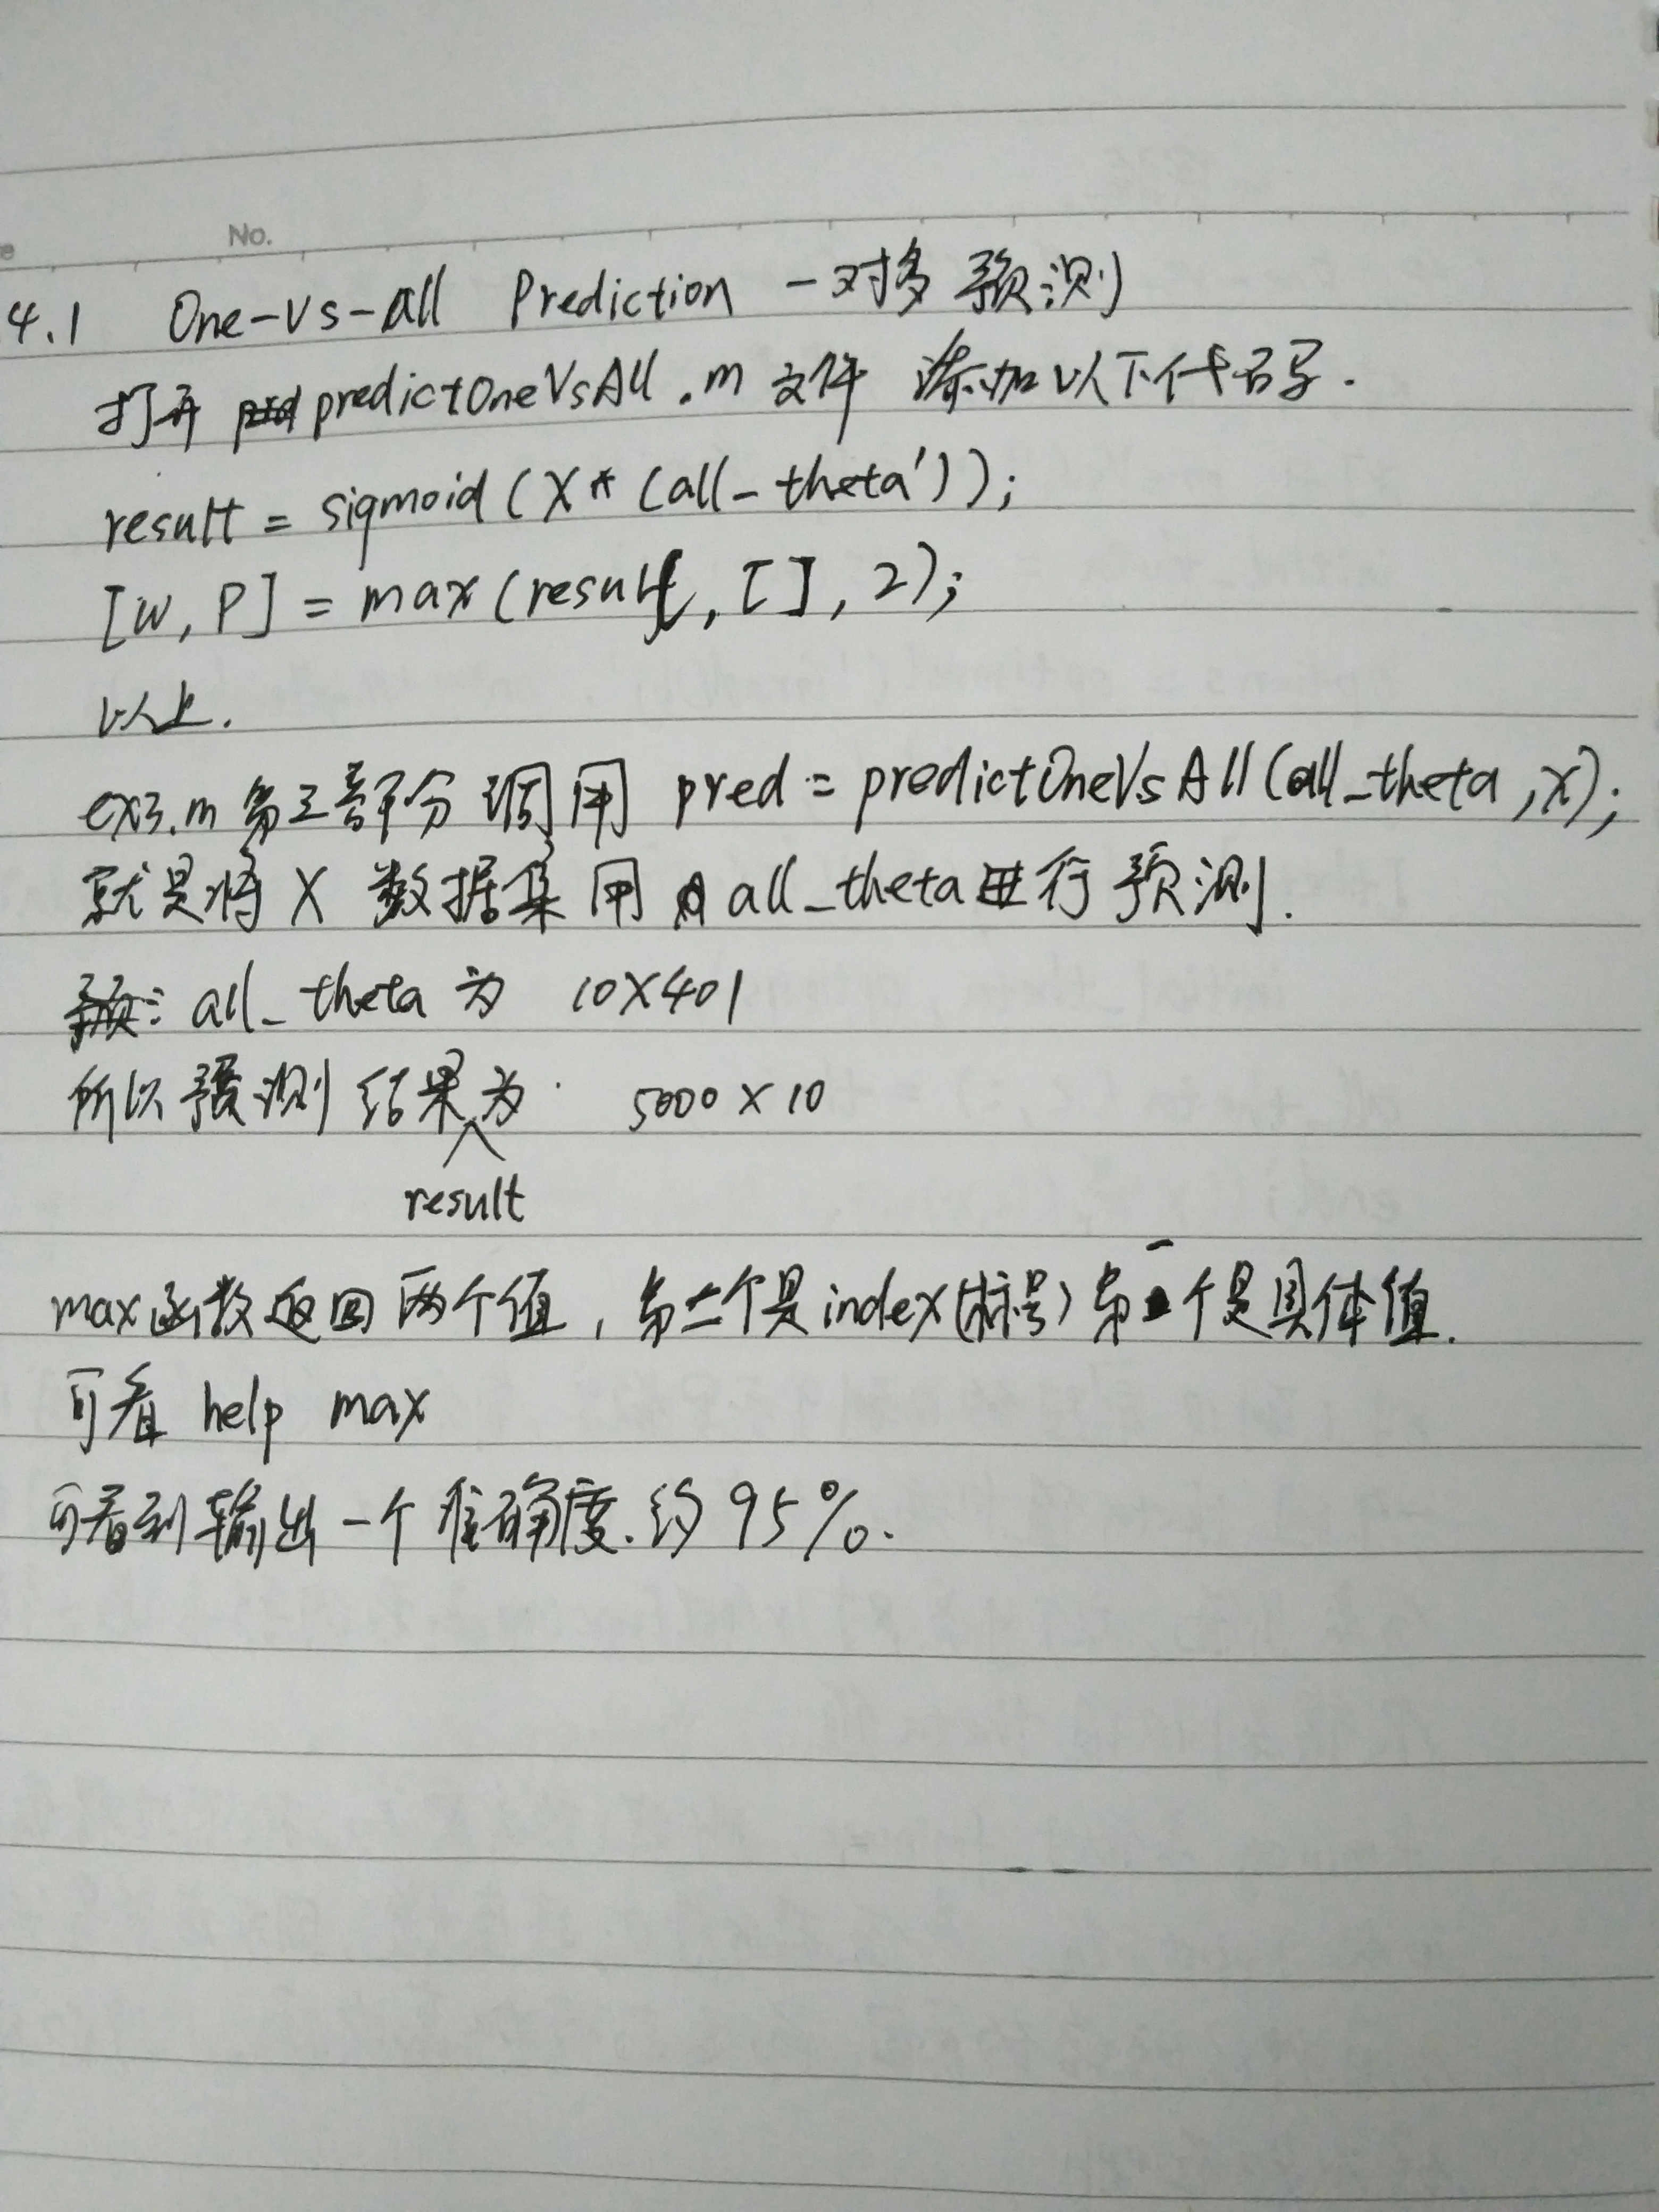 No.
4.1 One-Vs-all Prediction 一对多预测
打开 predictOneVsAll.m 文件 添加以下代码.
result = sigmoid(X*(all_theta'));
[w, P] = max(result, [], 2);
以上.
ex3.m 第三部分调用 pred = predictOneVsAll(all_theta, X);
就是将 X 数据集用 all_theta进行预测.
all_theta 为 10X401
所以预测结果为 5000 X 10
result
max函数返回两个值, 第二个是index(标号) 第一个是具体值.
可看 help max
可看到输出一个准确度.约95%.